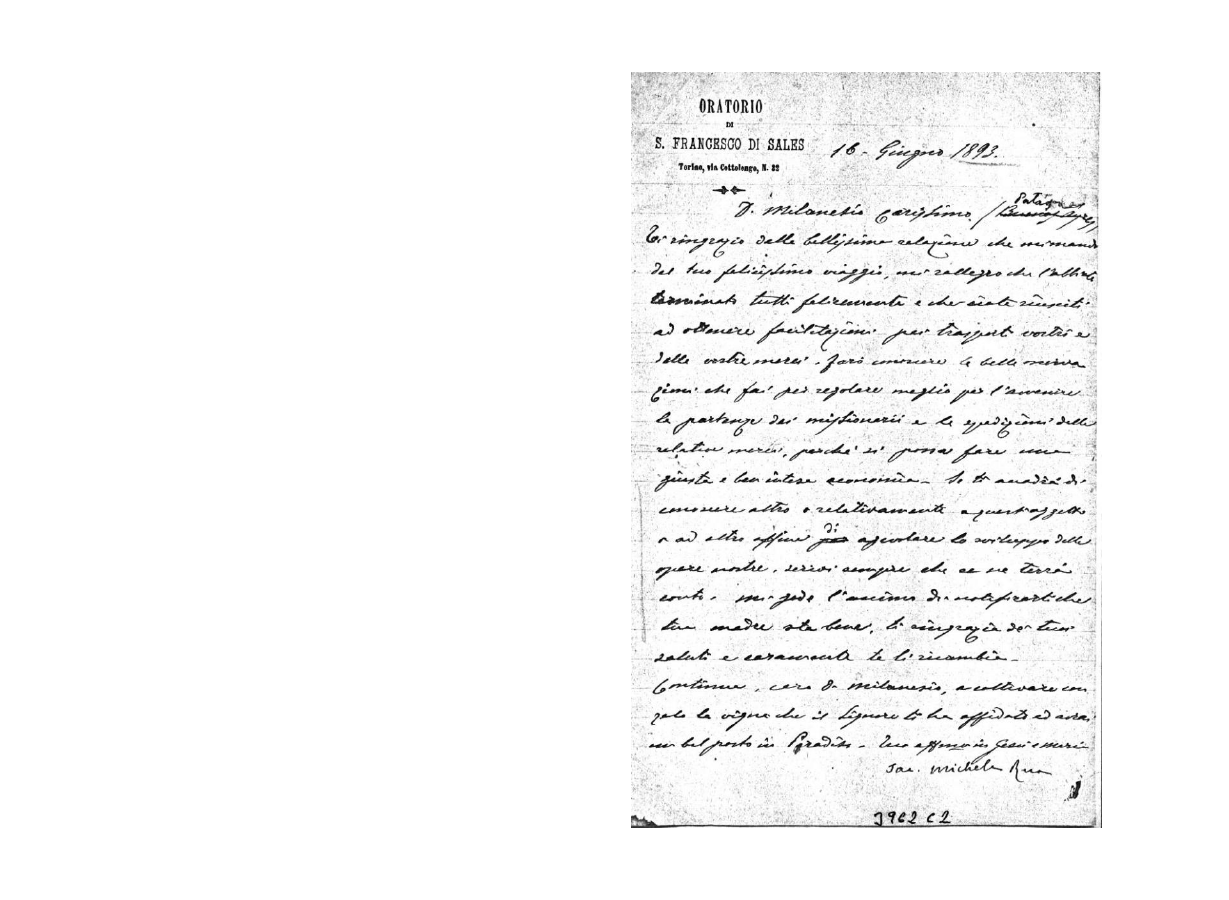 ORATORIO
DI
S. FRANCESCO DI SALES
Torino, via Cottolengo, N. 32
16 - Giugno 1893.
D. Milanesio Carissimo. (Buenos Ayres) Patagones
Ti ringrazio della bellissima relazione che mi mandi
del tuo felicissimo viaggio, mi rallegro che l'abbiate
terminato tutti felicemente e che siate riusciti
ad ottenere facilitazioni pei trasporti vostri e
delle vostre merci. Farò conoscere le belle osserva
zioni che fai per regolare meglio per l'avvenire
le partenze dei missionarii e le spedizioni delle
relative merci, perché si possa fare una
giusta e ben intesa economia. Se ti accadrà di
conoscere altro o relativamente a quest'oggetto
o ad altro affine per di agevolare lo sviluppo delle
opere nostre, scrivi sempre che se ne terrà
conto. Mi gode l'animo di notificarti che
tua madre sta bene, ti ringrazia dei tuoi
saluti e caramente te li ricambia.
Continua, caro D. Milanesio, a coltivare con
zelo la vigna che il Signore ti ha affidato ed avrai
un bel posto in Paradiso. Tuo affmo in Gesù e Maria
Sac. Michele Rua
3962 C2